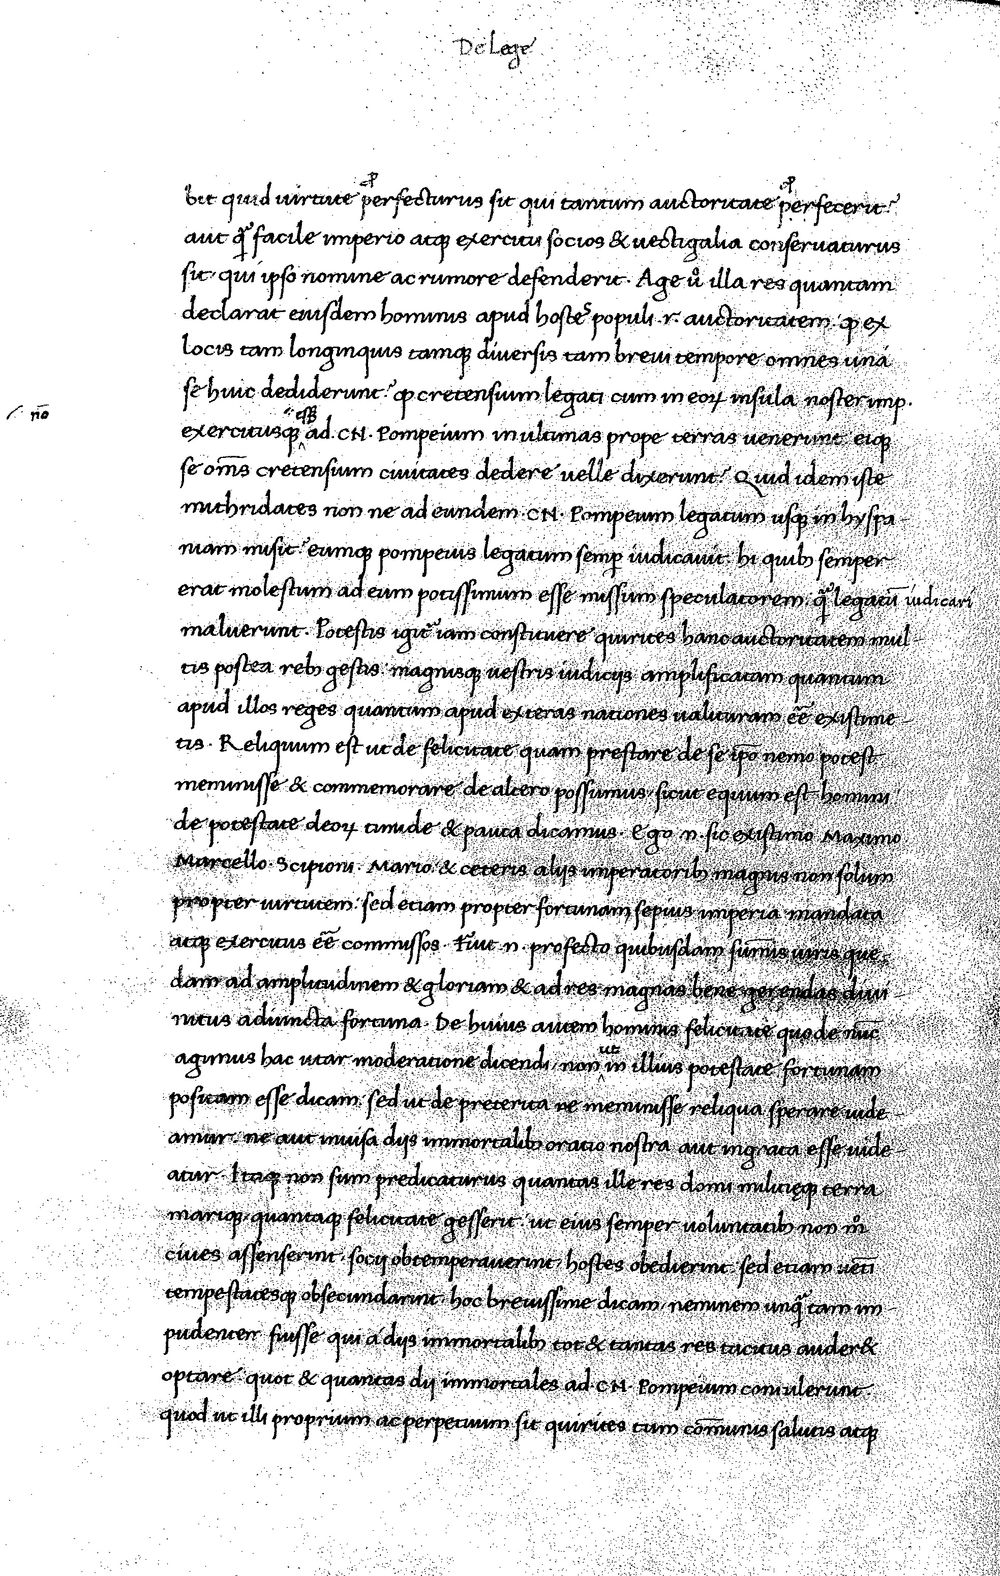 De Lege
bit quid uirtute perfecturus sit qui tantum auctoritate perfecerit?
aut q̃ facile imperio atq; exercitu socios & uectigalia conseruaturus
sit, qui ipso nomine ac rumore defenderit. Age u͛ illa res quantam
declarat eiusdem hominis apud hostes populi .r. auctoritatem. ꝙ ex
locis tam longinquis tamq; diuersis tam breui tempore omnes una
se huic dediderunt? ꝙ cretensium legati cum in eoꝝ insula noster imp.
nõ
exercitusq; ee͂t ad .CN. Pompeium in ultimas prope terras uenerunt. eiq;
se om̅s cretensium ciuitates dedere uelle dixerunt? Quid idem iste
mithridates non ne ad eundem .CN. Pompeium legatum usq; in hyspa-
niam misit? eumq; pompeius legatum semp̱ iudicauit. hi quibꝫ semper
erat molestum ad eum potissimum esse missum speculatorem. q̃ legatū iudicari
maluerunt. Potestis igit̃ iam constituere quirites hanc auctoritatem mul-
tis postea rebꝫ gestis magnisq; uestris iudicijs amplificatam quantum
apud illos reges quantum apud exteras nationes ualituram ee͂ existime-
tis. Reliquum est ut de felicitate quam prestare de se ip̅o nemo potest
meminisse & commemorare de altero possumus, sicut equum est homini
de potestate deoꝝ timide & pauca dicamus. Ego .n. sic existimo Maximo
Marcello. Scipioni. Mario. & ceteris alijs imperatoribꝫ magnis non solum
propter uirtutem. sed etiam propter fortunam sepius imperia mandata
atq; exercitus ee͂ commissos. Fuit .n. profecto quibusdam sum̅is uiris que-
dam ad amplitudinem & gloriam & ad res magnas bene gerendas diui-
nitus adiuncta fortuna. De huius autem hominis felicitate quo de nūc
agimus hac utar moderatione dicendi, non ut in illius potestate fortunam
positam esse dicam. sed ut de preterita re meminisse reliqua sperare uide-
amur. ne aut inuisa dijs immortalibꝫ oratio nostra aut ingrata esse uide-
atur. Itaq; non sum predicaturus quantas ille res domi militięq; terra
mariq; quantaq; felicitate gesserit. ut eius semper uoluntatibꝫ non m̊
ciues assenserint. socij obtemperauerint, hostes obedierint. sed etiam uēti
tempestatesq; obsecundarint. hoc breuissime dicam, neminem unq̃ tam im-
pudentem fuisse qui a dijs immortalibꝫ tot & tantas res tacitus auder&
optare. quot & quantas dij immortales ad .CN. Pompeium contulerunt.
quod ut illi proprium ac perpetuum sit quirites cum com̅unis salutis atq;